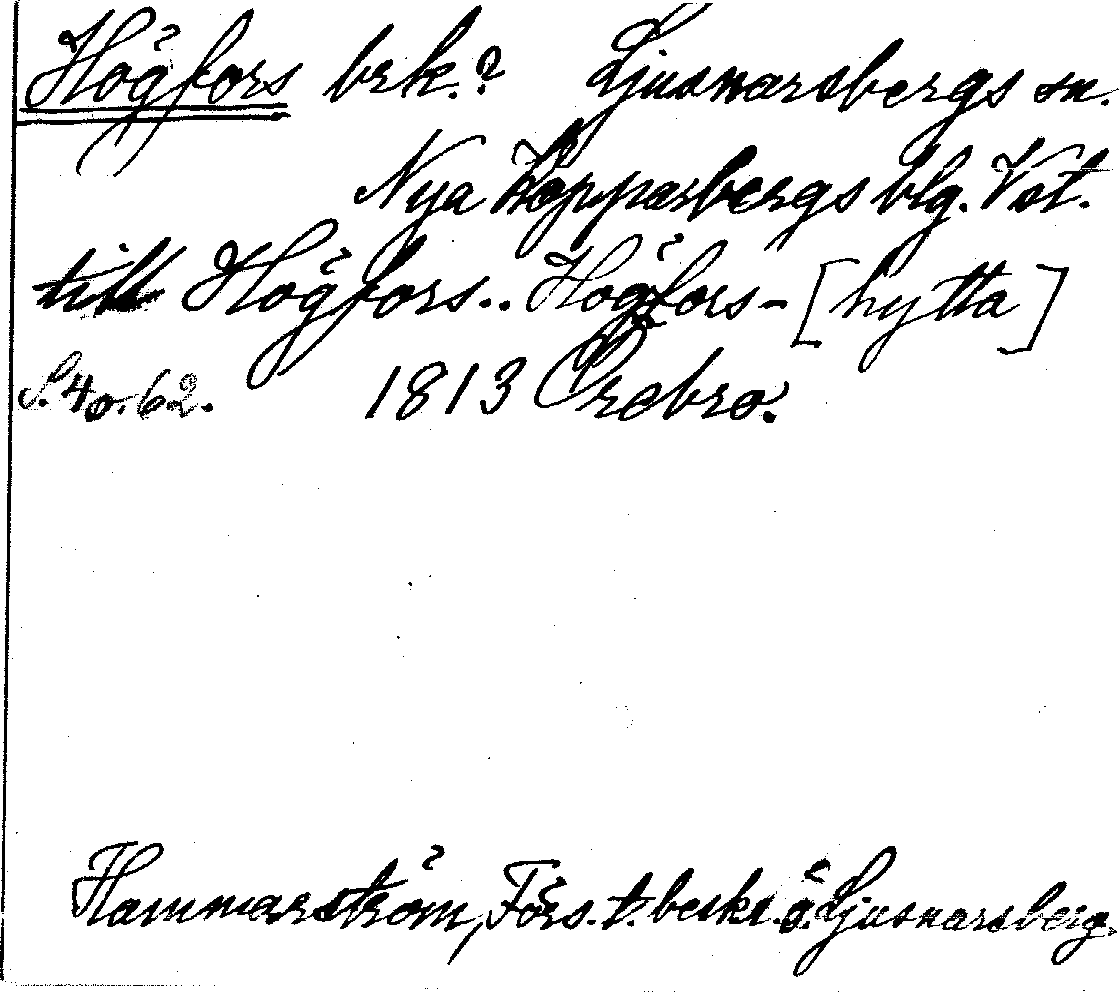 Högfors brk.? Ljusnarsbergs sn.
Nya Kopparbergs blg. Vst.
till Högfors.. Högfors-[hytta]
S. 40. 62. 1813 Örebro.
Hammarström, Förs. t. beskr. ö. Ljusnarsberg.